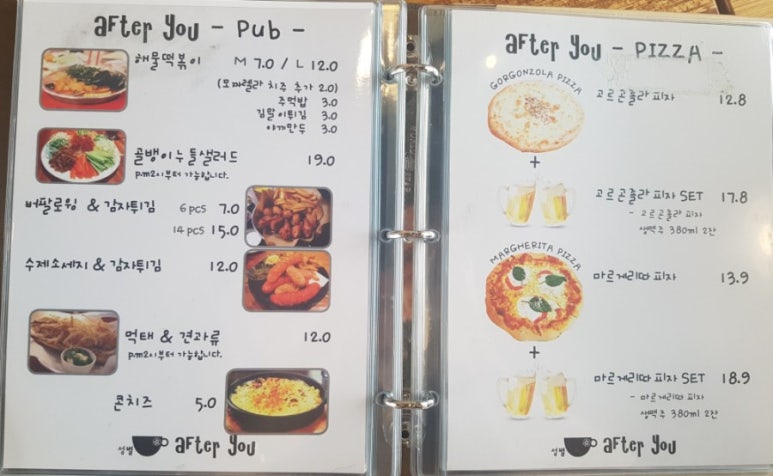 after you - Pub -
해물떡볶이 M 7.0 / L 12.0
(모짜렐라 치즈 추가 2.0)
주먹밥 3.0
김말이튀김 3.0
야끼만두 3.0
골뱅이누들샐러드 19.0
p.m2시부터 가능합니다.
버팔로윙 & 감자튀김 6 pcs 7.0
14 pcs 15.0
수제소세지 & 감자튀김 12.0
먹태 & 견과류 12.0
p.m2시부터 가능합니다.
콘치즈 5.0
성별 after you
after you - PIZZA -
GORGONZOLA PIZZA
고르곤졸라 피자 12.8
+
고르곤졸라 피자 SET 17.8
- 고르곤졸라 피자
생맥주 380ml 2잔
MARGHERITA PIZZA
마르게리따 피자 13.9
+
마르게리따 피자 SET 18.9
- 마르게리따 피자
생맥주 380ml 2잔
성별 after you